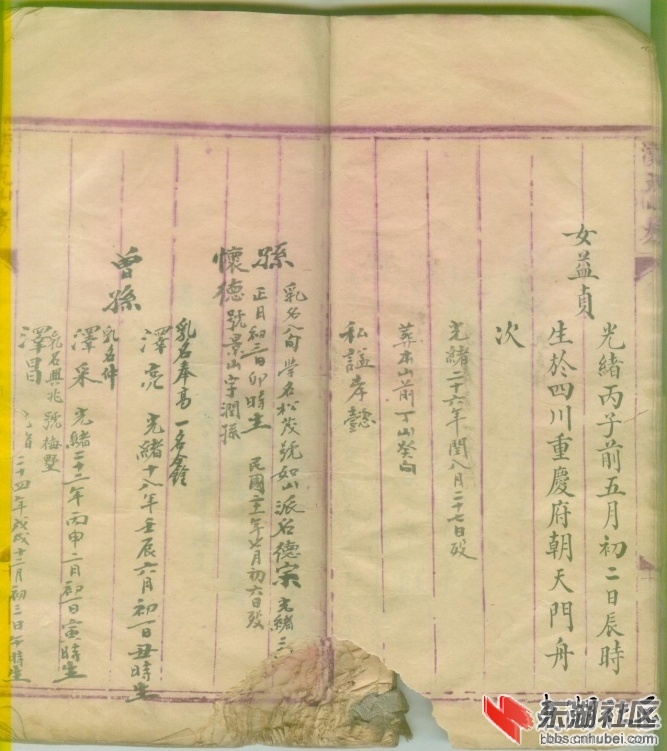 女益貞
光緒丙子前五月初二日辰時
生於四川重慶府朝天門舟
次
光緒二十六年閏八月二十七日歿
葬本山前丁山癸向
私諡孝懿
孫
乳名八旬 學名松茂號如山派名德宗 光緒三
正月初三日卯時生
民國
年
月初六日歿
懷德
號景山字潤孫
曾孫
乳名奉高 一名
澤亮 光緒十八年壬辰六月初一日丑時生
乳名
澤采 光緒二十二年丙申二月初一日寅時生
乳名興兆 號梅墅
澤昌
二十四年戊戌十二月初三日午時生
东湖社区
bbs.cnhubei.com